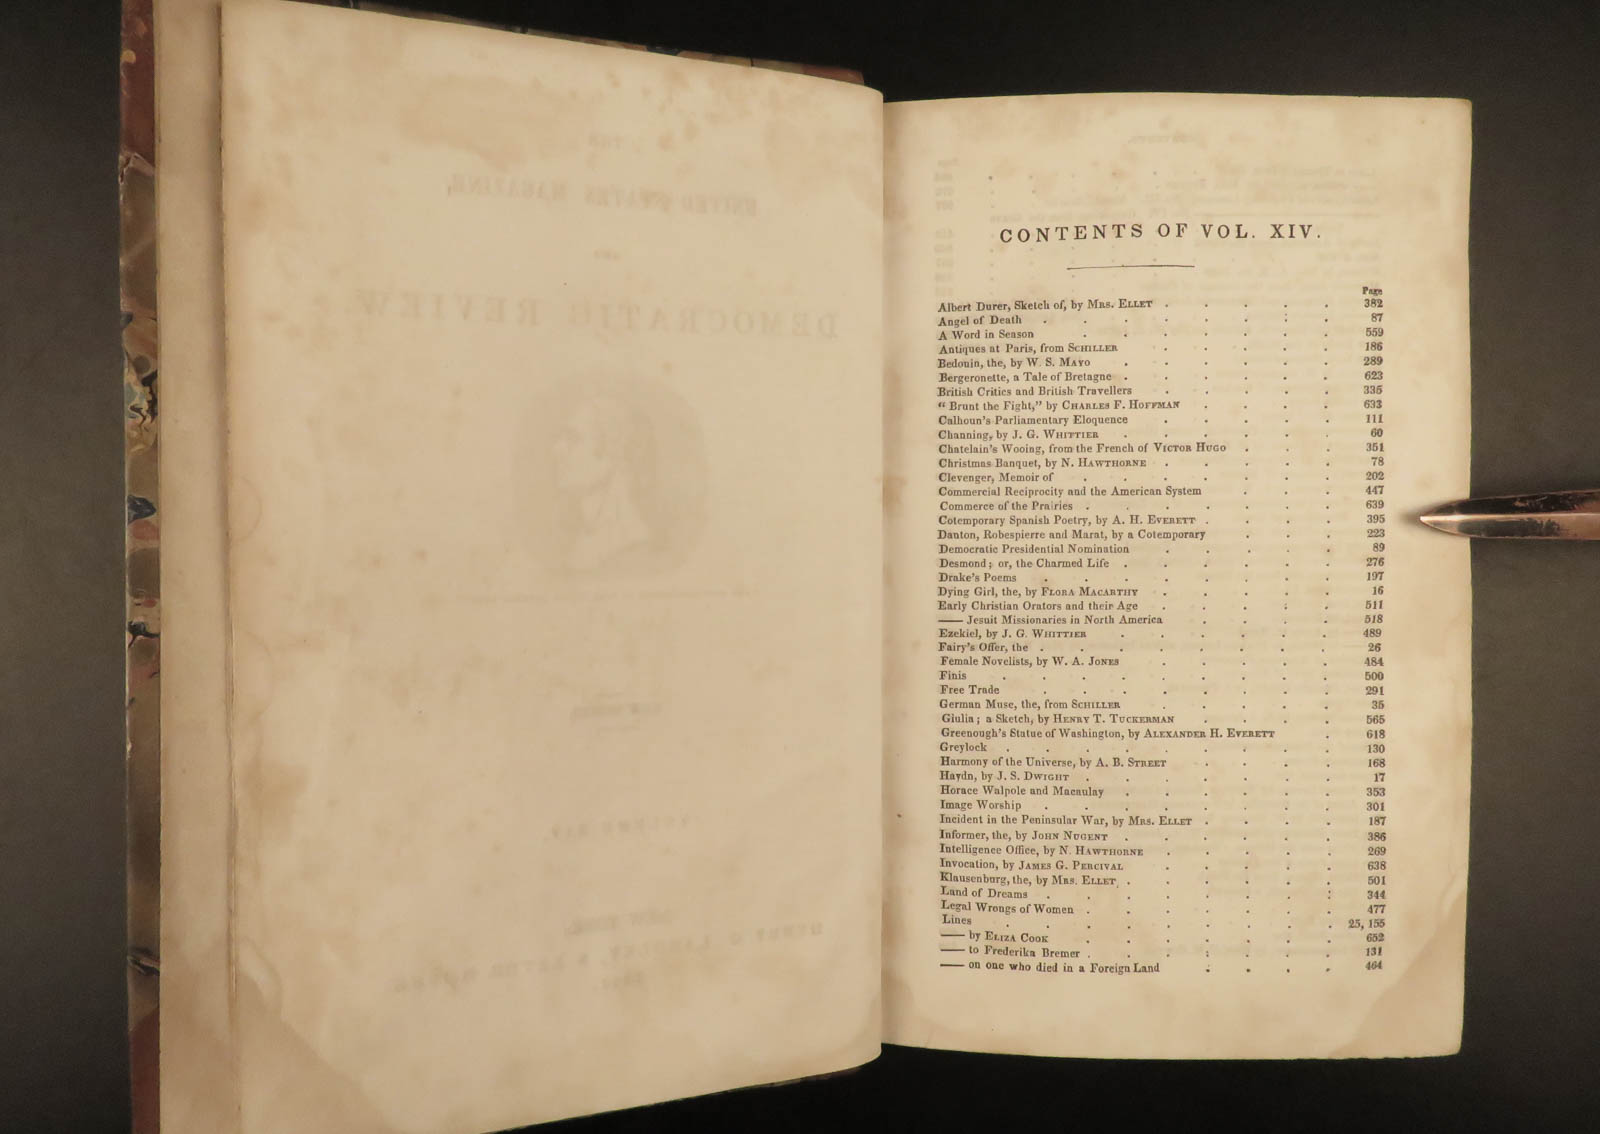 CONTENTS OF VOL. XIV.
Page
Albert Durer, Sketch of, by MRS. ELLET . . . . . 382
Angel of Death . . . . . . . . 87
A Word in Season . . . . . . . 559
Antiques at Paris, from SCHILLER . . . . . 186
Bedouin, the, by W. S. MAYO . . . . . . 289
Bergeronette, a Tale of Bretagne . . . . . . 623
British Critics and British Travellers . . . . . 335
"Brunt the Fight," by CHARLES F. HOFFMAN . . . . 633
Calhoun's Parliamentary Eloquence . . . . . 111
Channing, by J. G. WHITTIER . . . . . . 60
Chatelain's Wooing, from the French of VICTOR HUGO . . . 351
Christmas Banquet, by N. HAWTHORNE . . . . . 78
Clevenger, Memoir of . . . . . . . 202
Commercial Reciprocity and the American System . . . 447
Commerce of the Prairies . . . . . . . 639
Cotemporary Spanish Poetry, by A. H. EVERETT . . . . 395
Danton, Robespierre and Marat, by a Cotemporary . . . 223
Democratic Presidential Nomination . . . . . 89
Desmond; or, the Charmed Life . . . . . . 276
Drake's Poems . . . . . . . . 197
Dying Girl, the, by FLORA MACARTHY . . . . . 16
Early Christian Orators and their Age . . . . . 511
—— Jesuit Missionaries in North America . . . . 518
Ezekiel, by J. G. WHITTIER . . . . . . 489
Fairy's Offer, the . . . . . . . . 26
Female Novelists, by W. A. JONES . . . . . 484
Finis . . . . . . . . . 500
Free Trade . . . . . . . . 291
German Muse, the, from SCHILLER . . . . . 35
Giulia; a Sketch, by HENRY T. TUCKERMAN . . . . 565
Greenough's Statue of Washington, by ALEXANDER H. EVERETT . 618
Greylock . . . . . . . . . 130
Harmony of the Universe, by A. B. STREET . . . . 168
Haydn, by J. S. DWIGHT . . . . . . . 17
Horace Walpole and Macaulay . . . . . . 353
Image Worship . . . . . . . . 301
Incident in the Peninsular War, by MRS. ELLET . . . . 187
Informer, the, by JOHN NUGENT . . . . . . 386
Intelligence Office, by N. HAWTHORNE . . . . . 269
Invocation, by JAMES G. PERCIVAL . . . . . 638
Klausenburg, the, by MRS. ELLET . . . . . . 501
Land of Dreams . . . . . . . . 344
Legal Wrongs of Women . . . . . . . 477
Lines . . . . . . . . . 25, 155
—— by ELIZA COOK . . . . . . . 652
—— to Frederika Bremer . . . . . . . 131
—— on one who died in a Foreign Land . . . . 464